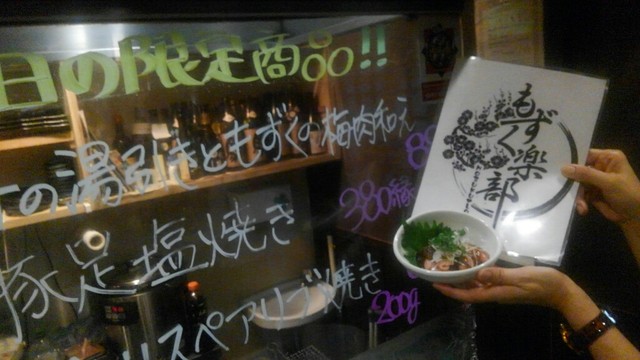 日の限定商品!!
の湯引きともずくの梅肉和え
380縁
豚足塩焼き
スペアリブ焼き
200g
もずく
楽部